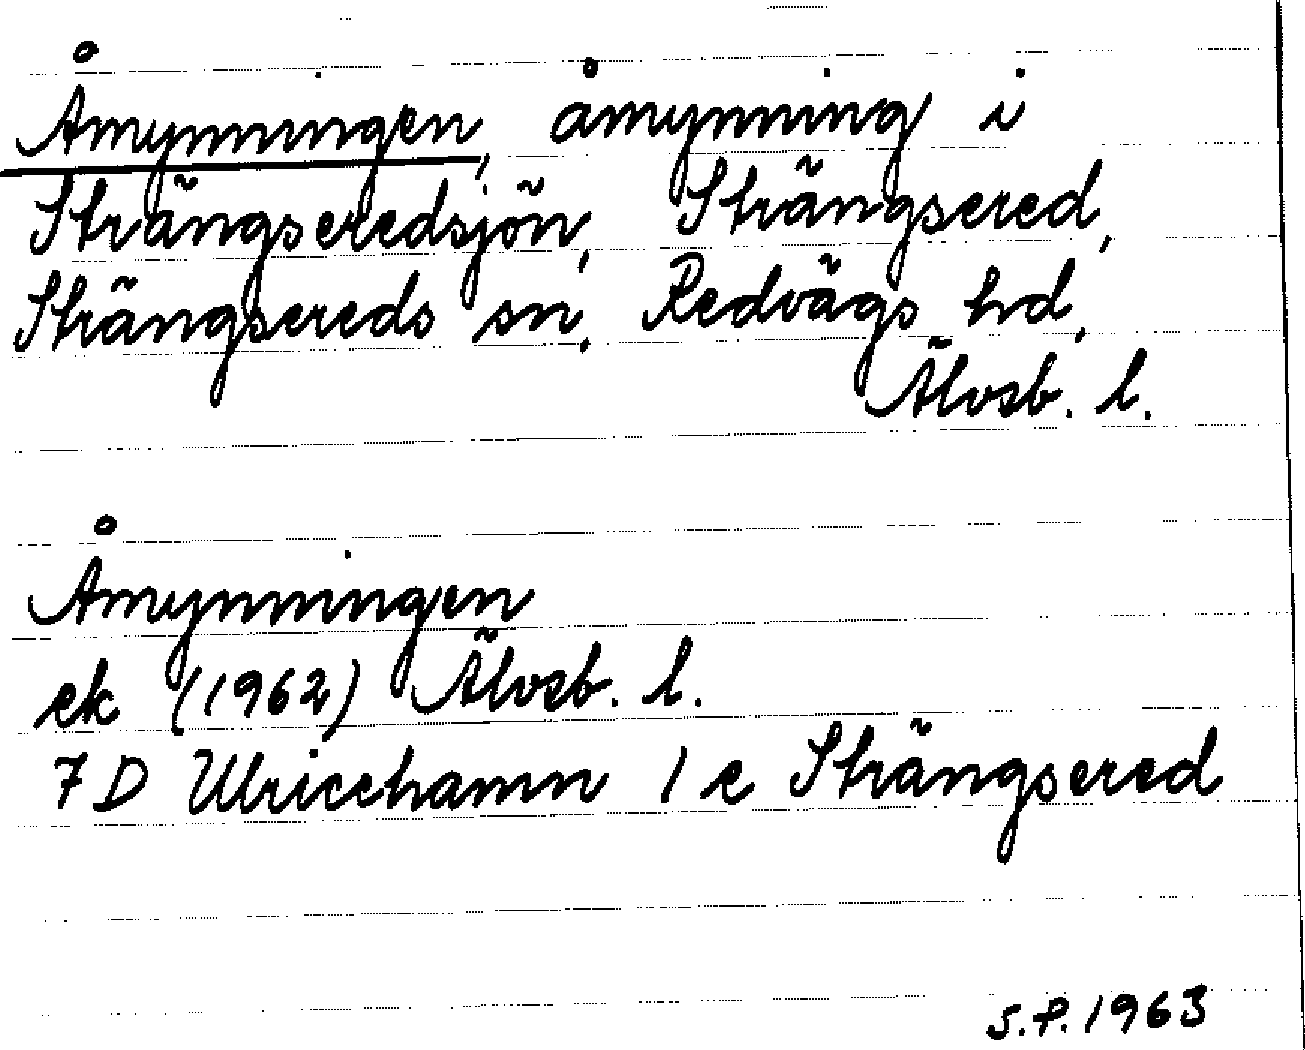 Åmynningen, åmynning i
Strängseredsjön, Strängsered,
Strängsereds sn, Redvägs hd,
Älvsb. l.
Åmynningen
ek (1962) Älvsb. l.
7 D Ulricehamn 1 e Strängsered
S.P. 1963